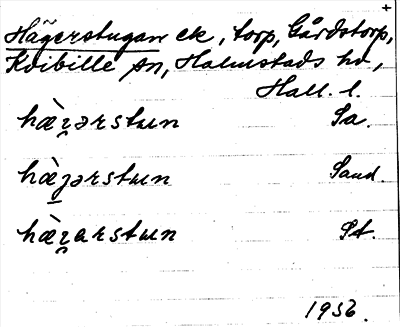 +
Hägerstugan ek, torp, Gårdstorp,
Kvibille sn, Halmstads hd,
Hall. l.
hæ̀ʒ̯ərstɯn Sa.
hæ̀ȷərstɯn Sand.
hæ̀ʒ̯arstɯn St.
1936.